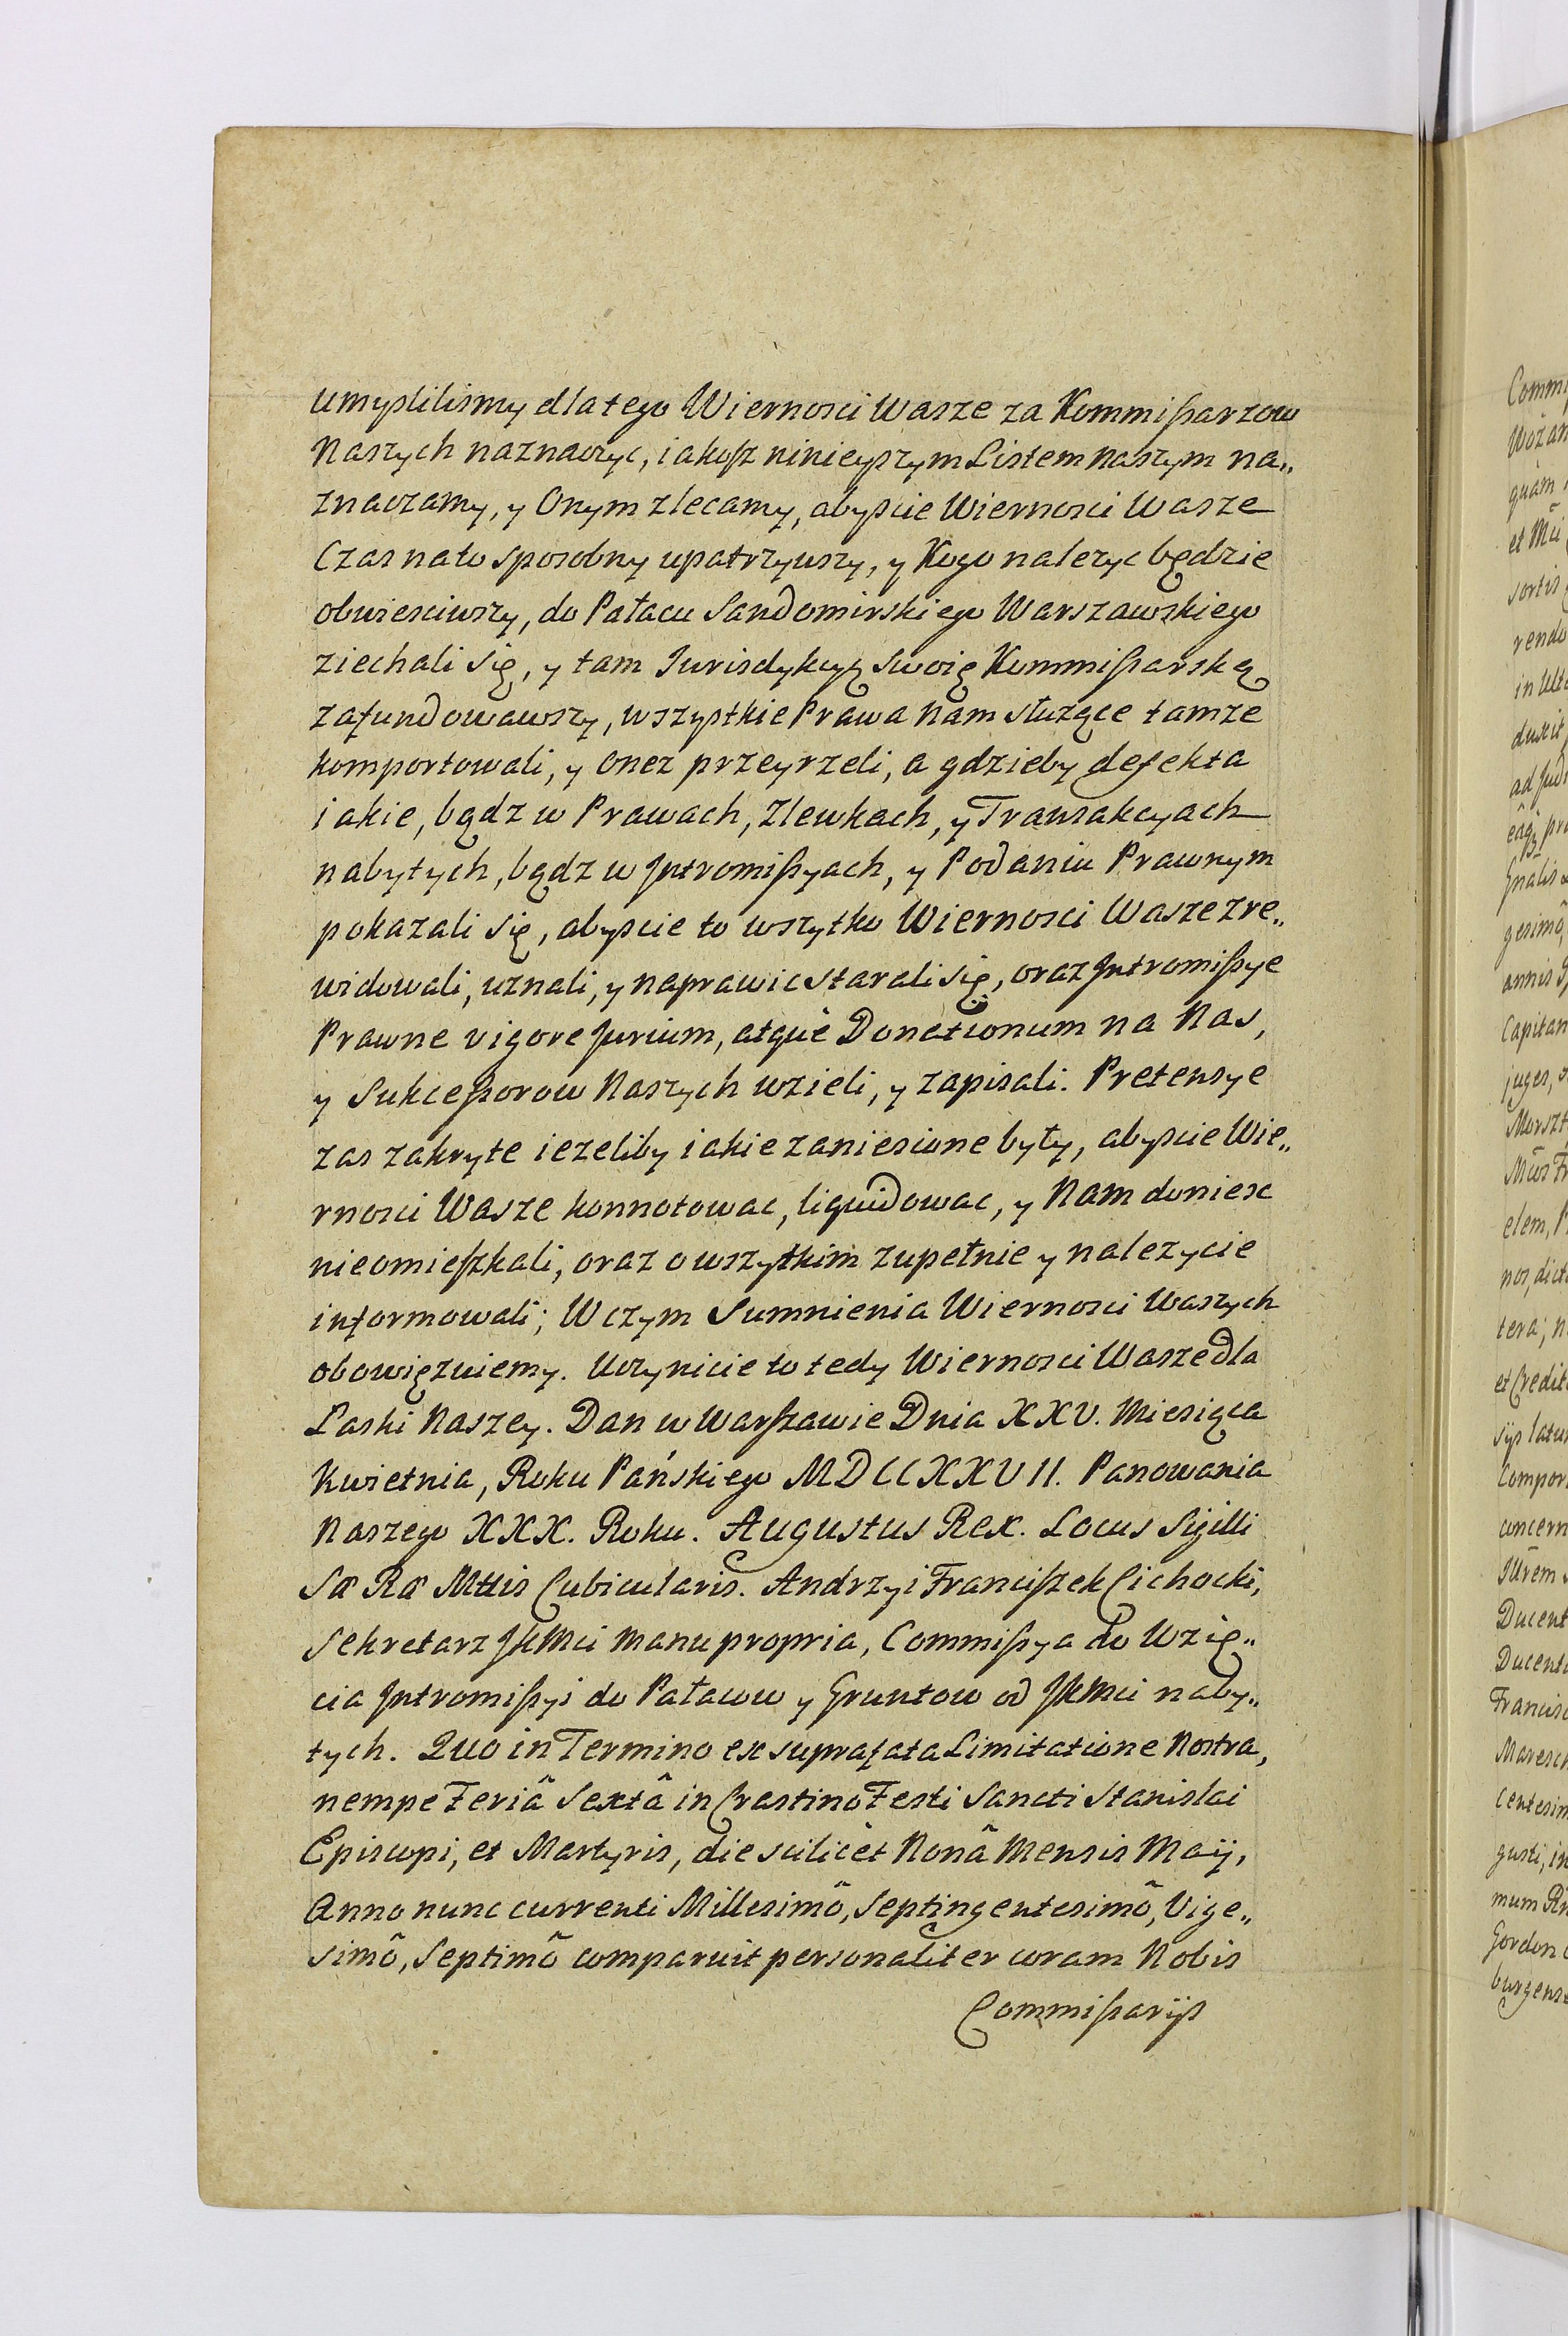 umyslilismy dlatego Wiernosci Wasze za Kommißarzow
Naszych naznaczyc, iakosz ninieyszym Listem Naszym na„
znaczamy, y Onym zlecamy, abyscie Wiernosci Wasze
Czas nato sposobny upatrzywszy, y Kogo nalezyc będzie
obwiesciwszy, do Pałacu Sandomirskiego Warszawskiego
ziechali się, y tam Jurisdykcyą swoię Kommißarską
zafundowawszy, wszystkie Prawa Nam służące tamze
komportowali, y onez przeyrzeli, a gdzieby defekta
iakie, bądz w Prawach, Zlewkach, y Transakcyach
nabytych, bądz w Jntromißyach, y Podaniu Prawnym
pokazali się, abyscie to wszytko Wiernosci Wasze zre„
widowali, uznali, y naprawic starali się, oraz Jntromißye
Prawne vigore Jurium, atque Donationum na Nas,
y Sukceßorow Naszych wzieli, y zapisali. Pretensye
zas zakryte iezeliby iakie zaniesione były, abyscie Wie„
rnosci Wasze konnotowac, liquidowac, y Nam doniesc
nieomieszkali, oraz o wszytkim zupełnie y nalezycie
informowali; W czym Sumnienia Wiernosci Waszych
obowięzuiemy. Uczynicie to tedy Wiernosci Wasze dla
Laski Naszey. Dan w Warszawie Dnia XXV. Miesiąca
Kwietnia, Roku Pańskiego MDCCXXVII. Panowania
Naszego XXX. Roku. Augustus Rex. Locus Sigilli
Sæ Ræ Mttis Cubicularis. Andrzyi Franciszek Cichocki,
Sekretarz JKMci manu propria, Commißya do Wzię„
cia Jntromißyi do Pałacow y Gruntow od JKMci naby„
tych. Quo in Termino ex suprafata Limitatione Nostra,
nempe Feriâ Sextâ in Crastino Festi Sancti Stanislai
Episcopi, et Martyris, die scilicèt Nonâ Mensis Maij,
Anno nunc currenti Millesimô, Septingentesimô, Vige„
simô, Septimô comparuit personaliter coram Nobis
Commißarijs